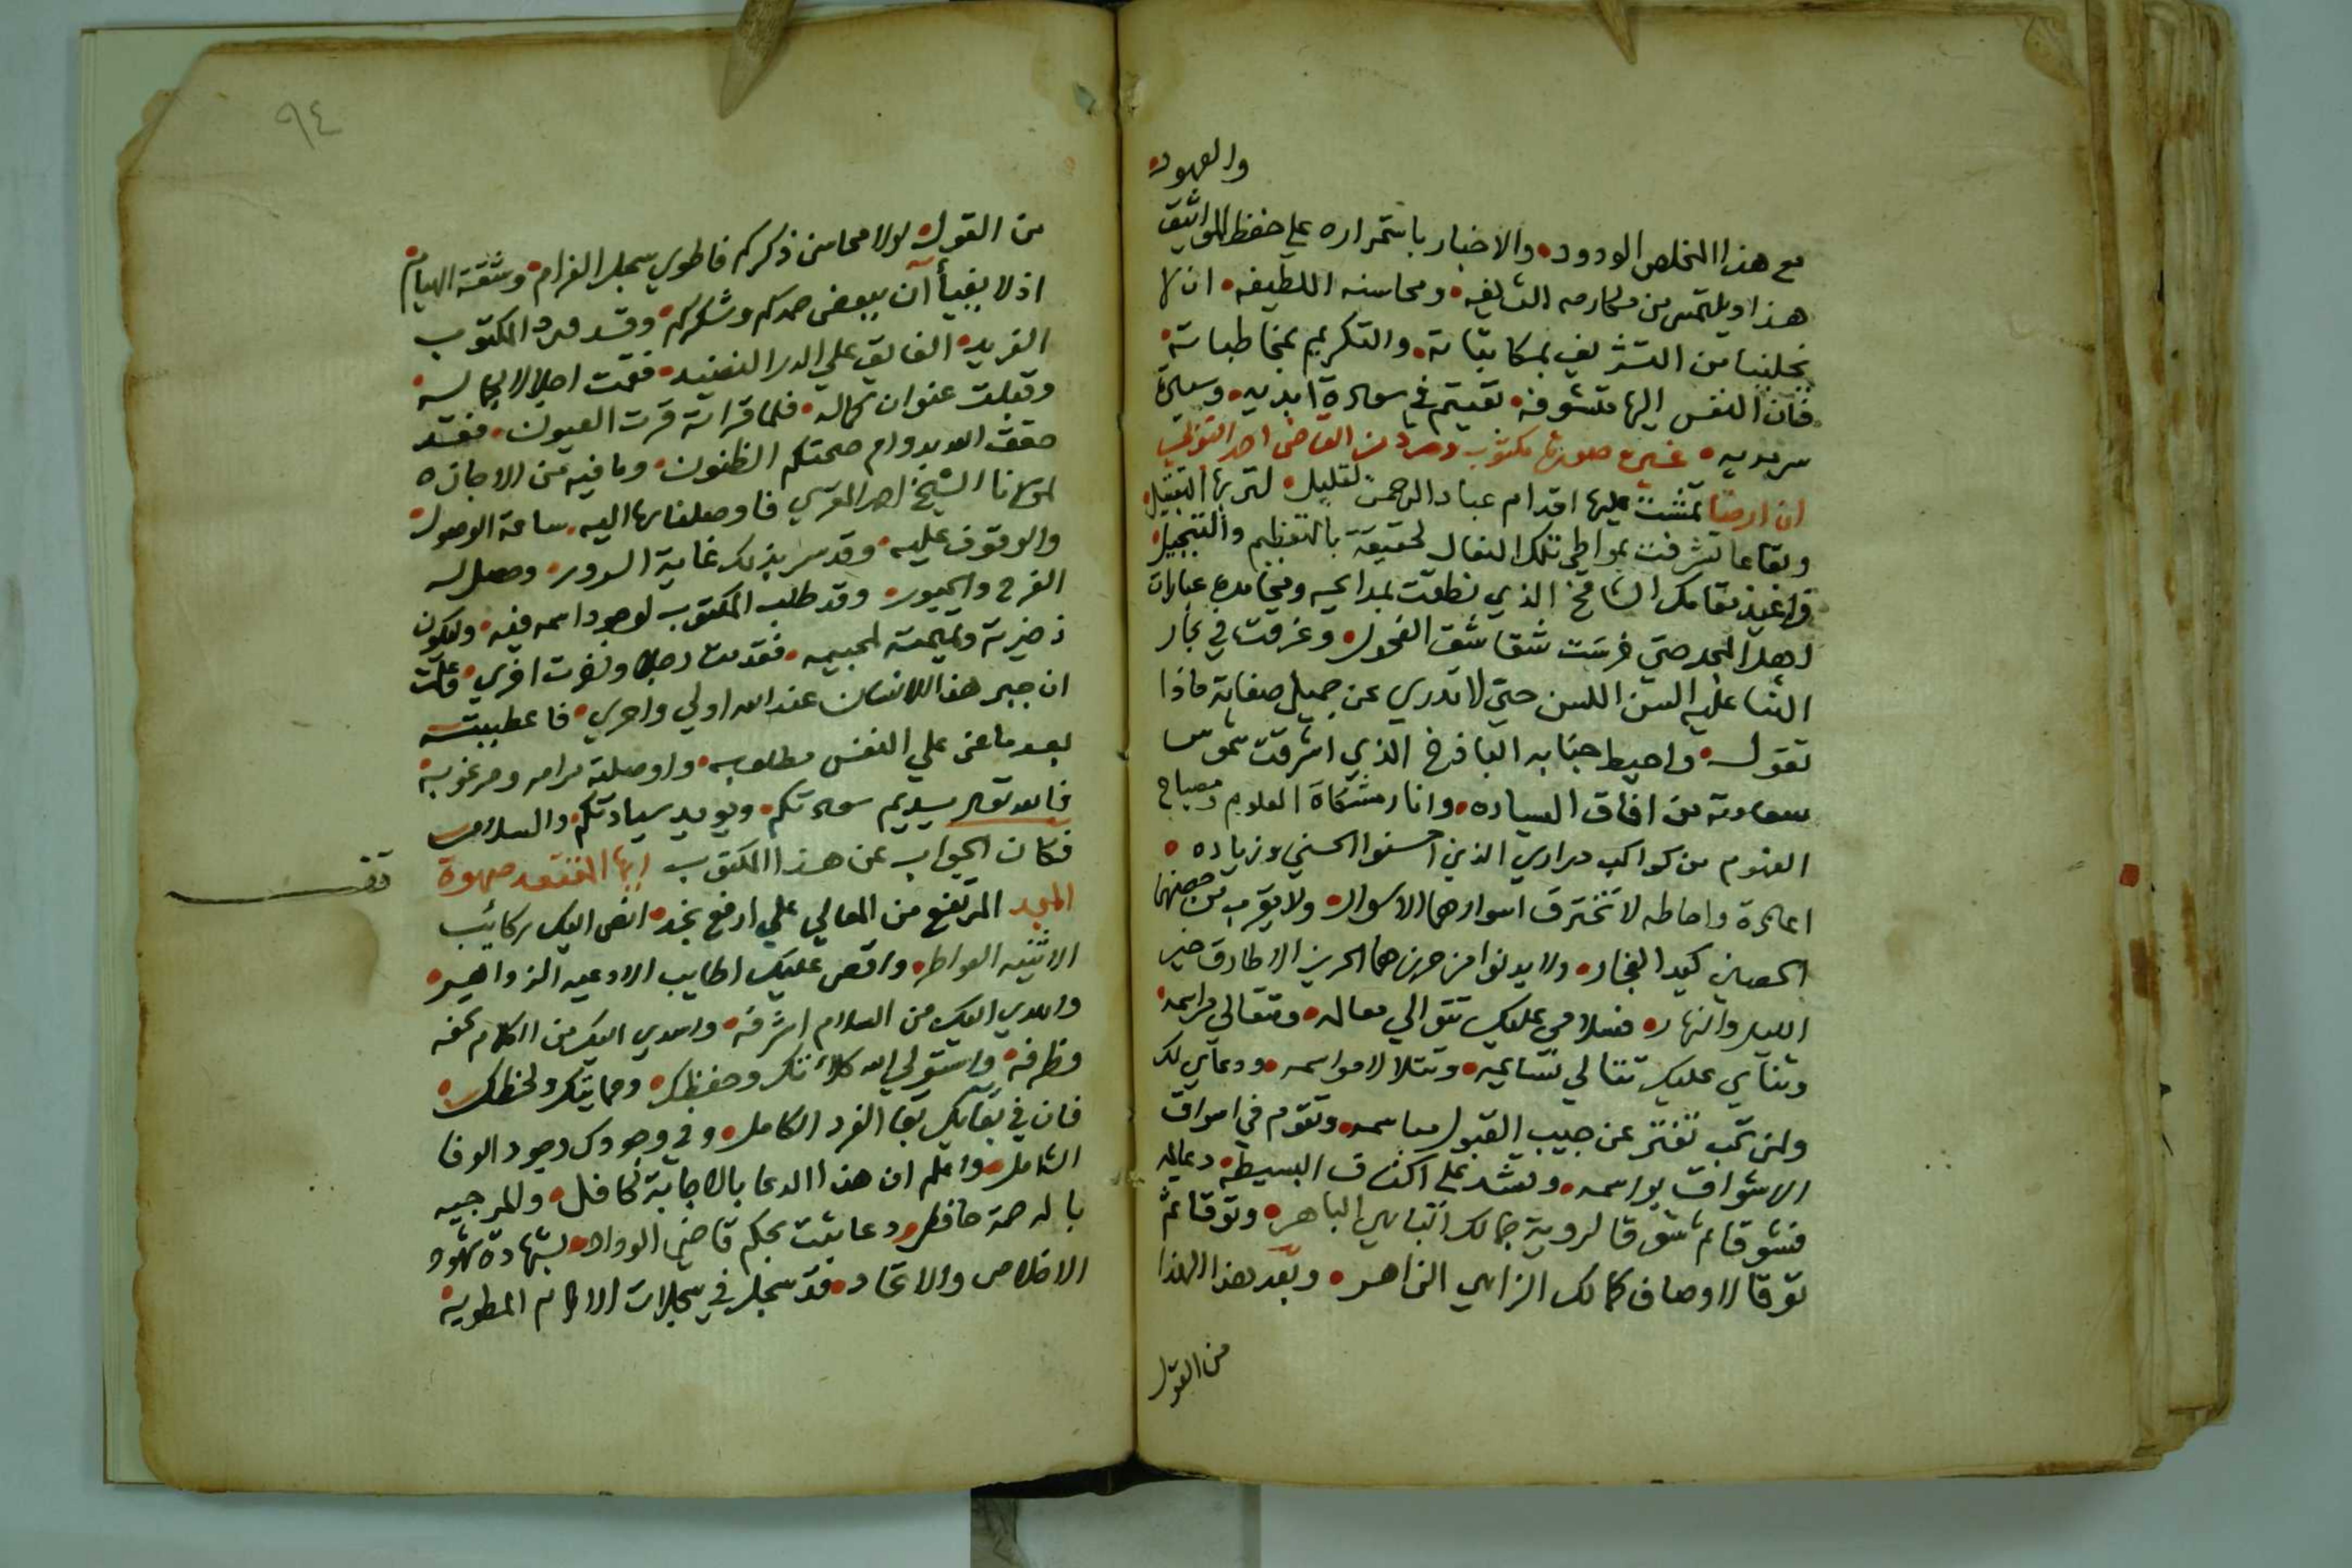 والعهود
مع هذا المخلص الودود والاخبار باستمراره علي حفظ المواثيق
هذا ويلتمس من مكارمه الشريفه ومحاسنه اللطيفه ان لا
يخلينا من التشريف بمكاتباته والتكريم بمخاطباته
فان النفس اليها متشوفه تقيتم في سعادة ابديه وسيادة
سرمديه صورة مكتوب من القاضي احمد
ان ارضا تمشت عليها اقدام عباد الرحمن لقليل لتربها التقبيل
وبقاعا تشرفت بمواطي تلك النعال لحقيقة بالتعظيم والتبجيل
مقامك الشامخ الذي نطقت بمدايحه عبارات
اهل المجد حتي خرست شقاشق الفحول وغرقت في بحار
الثنا عليه السن اللسن حتي لا تدري عن جميل صفاته ماذا
تقول واحيط جنابه الباذخ الذي اشرقت شموس
سعادته من افاق السياده وانار مشكاة العلوم ومصباح
الفهوم من كواكب دراري الذين احسنوا الحسني وزياده
احاطه لا تخترق اسوارها الاسوا ولا يقرب من حصنها
الحصين كيد الفجار ولا يدنوا من حرزها الحريز الا طارق خير
الليل والنهار فسلامي عليك تتوالي معالمه وتتعالي مراسمه
وثناي عليك تتتالي نسايمه وتتلالا مواسمه ودعاي لك
تفتر عن حبيب القبول مباسمه وتقوم في اسواق
الاشواق مواسمه علي اكناف البسيطه دعايمه
فشوقا ثم شوقا لروية جمالك الباهر وتوقا ثم
توقا لاوصاف كمالك الزاهي الزاهر وبعد هذا الهذا
من القول
٩٤
من القول لولا محاسن ذكركم فاطوي سجل الغرام وشقة الهيام
اذ لا يفيا آن ببعض حمدكم وشكركم وقد ورد المكتوب
الفريد الفايق علي الدر النضيد فقمت اجلالا لجلاله
وقبلت عنوان كماله فلما قراته قرت العيون فقد
حقق الله بدوام صحتكم الظنون وما فيه من الاجازه
لمولانا الشيخ احمد فاوصلناها اليه ساعة الوصول
والوقوف عليه وقد سر بذلك غاية السرور وحصل له
الفرح والحبور وقد طلب المكتوب لوجود اسمه فيه وليكون
ذخيرة وتميمة لمحبيه فقدمت رجلا واخرت اخري وقلت
ان جبر هذا الانسان عند الله اولي واحري فاعطيته
بعد ما عز علي النفس مطلوبه واوصلته مرامه ومرغوبه
فالله تعالى يديم سعادتكم ويويد سيادتكم والسلام
فكان الجواب عن هذا المكتوب ايها المقتعد صهوة
المجد المرتفع من المعالي علي ارفع نجد انص اليك ركائب
الاثنيه العواطر واقص عليك اطايب الادعيه الزواهر
واهدي اليك من السلام اشرفه واسدي اليك من الكلام تحفه
وظرفه واستولي الله كلائتك وحفظك وحمايتك ولحظك
فان في بقايك بقا الفرد الكامل وفي وجودك وجود الوفا
الشامل واعلم ان هذا الدعا بالاجابة كافل ولمرجيه
بالرحمة حافل دعا يثبت بحكم قاضي الوداد بشهادة شهود
الاخلاص والاتحاد قد سجل في سجلات الاكرام المطويه